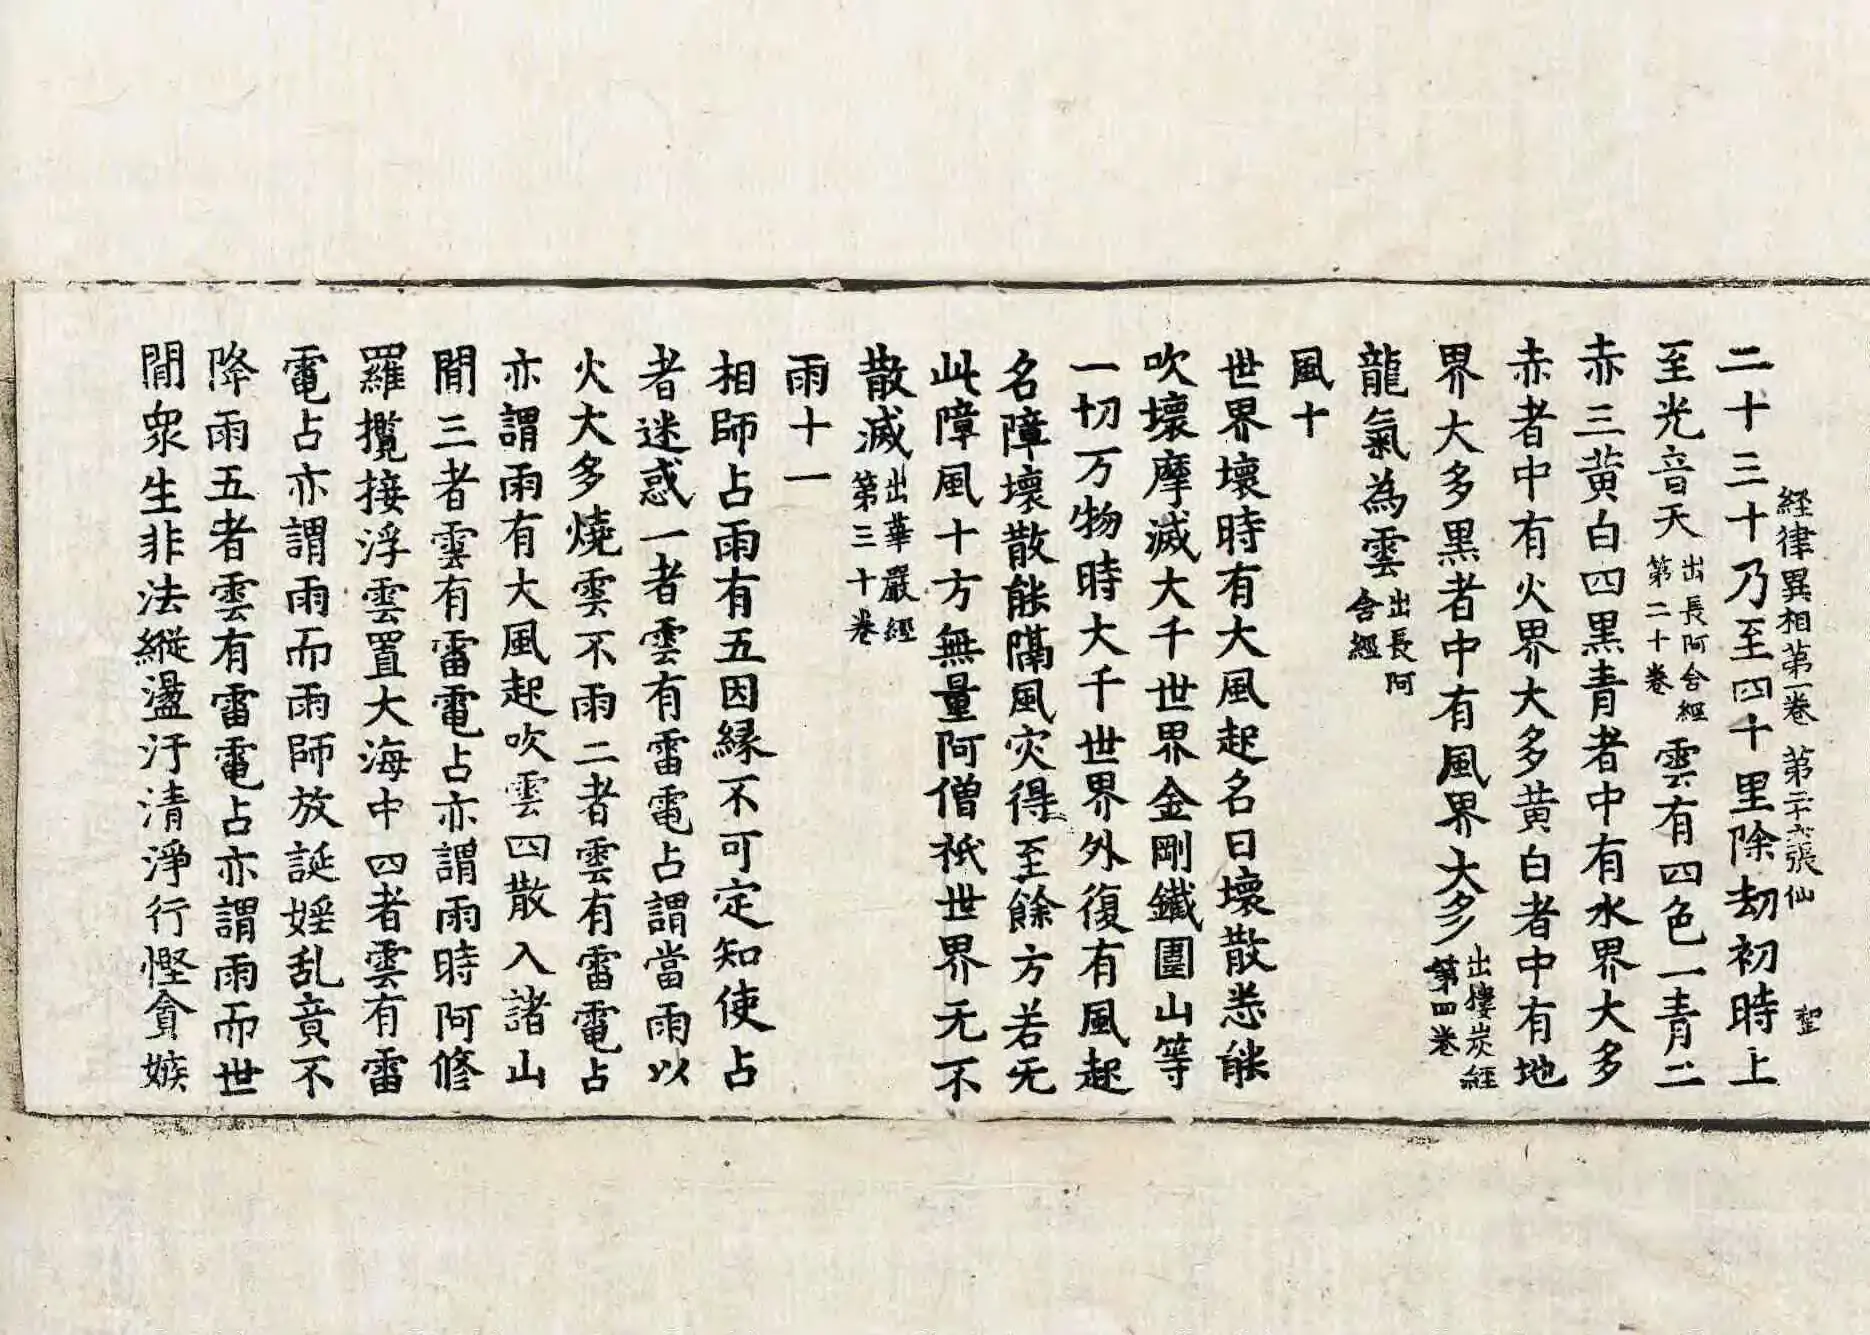 経律異相第一卷 第二十六張 仙 聖
二十三十乃至四十里除劫初時上
至光音天出長阿含經第二十卷雲有四色一青二
赤三黄白四黒青者中有水界大多
赤者中有火界大多黄白者中有地
界大多黒者中有風界大多出樓炭經第四卷
龍氣為雲出長阿含經
風十
世界壞時有大風起名曰壞散悉能
吹壞摩滅大千世界金剛鐵圍山等
一切万物時大千世界外復有風起
名障壞散能隔風灾得至餘方若无
此障風十方無量阿僧祇世界无不
散滅出華嚴經第三十卷
雨十一
相師占雨有五因縁不可定知使占
者迷惑一者雲有雷電占謂當雨以
火大多燒雲不雨二者雲有雷電占
亦謂雨有大風起吹雲四散入諸山
間三者雲有雷電占亦謂雨時阿修
羅攬接浮雲置大海中四者雲有雷
電占亦謂雨而雨師放誕婬乱竟不
降雨五者雲有雷電占亦謂雨而世
間衆生非法縱盪汙清淨行慳貪嫉